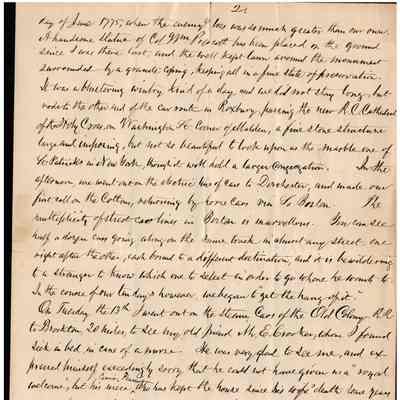 2.
day of June 1775, when the enemy's loss was so much greater than our own.
A handsome statue of Col Wm Prescott has been placed on the ground
since I was there last, and the well kept lawn around the monument
surrounded by a granite coping, keeping all in a fine state of preservation.
It was a blustering wintry kind of a day, and we did not stay long, but
rode to the other end of the car route in Roxbury, passing the new R.C. Cathedral
of the Holy Cross, on Washington St. corner of Malden, a fine stone structure
large and imposing, but not so beautiful to look upon as the marble one of
St Patricks in New York, though it will hold a larger congregation. In the
afternoon we went out on the electric line of cars to Dorchester, and made our
first call on the Cottons, returning by horse cars via So Boston. The
multiplicity of street car lines in Boston is marvellous. You can see
half a dozen cars going along on the same track in almost any street one
right after the other, each bound to a different destination, and it is bewildering
to a stranger to know which one to select in order to go where he wants to.
In the course of our ten days however, we began to "get the hang of it."
On Tuesday the 13th I went out on the Steam Cars of the Old Colony R.R.
to Brockton 20 miles, to see my old friend M. E. Crocker, whom I found
sick a bed in care of a nurse. He was very glad to see me, and ex-
pressed himself exceedingly sorry that he could not have given us a "royal
welcome", but his niece, who has kept the house since his wife's death some years